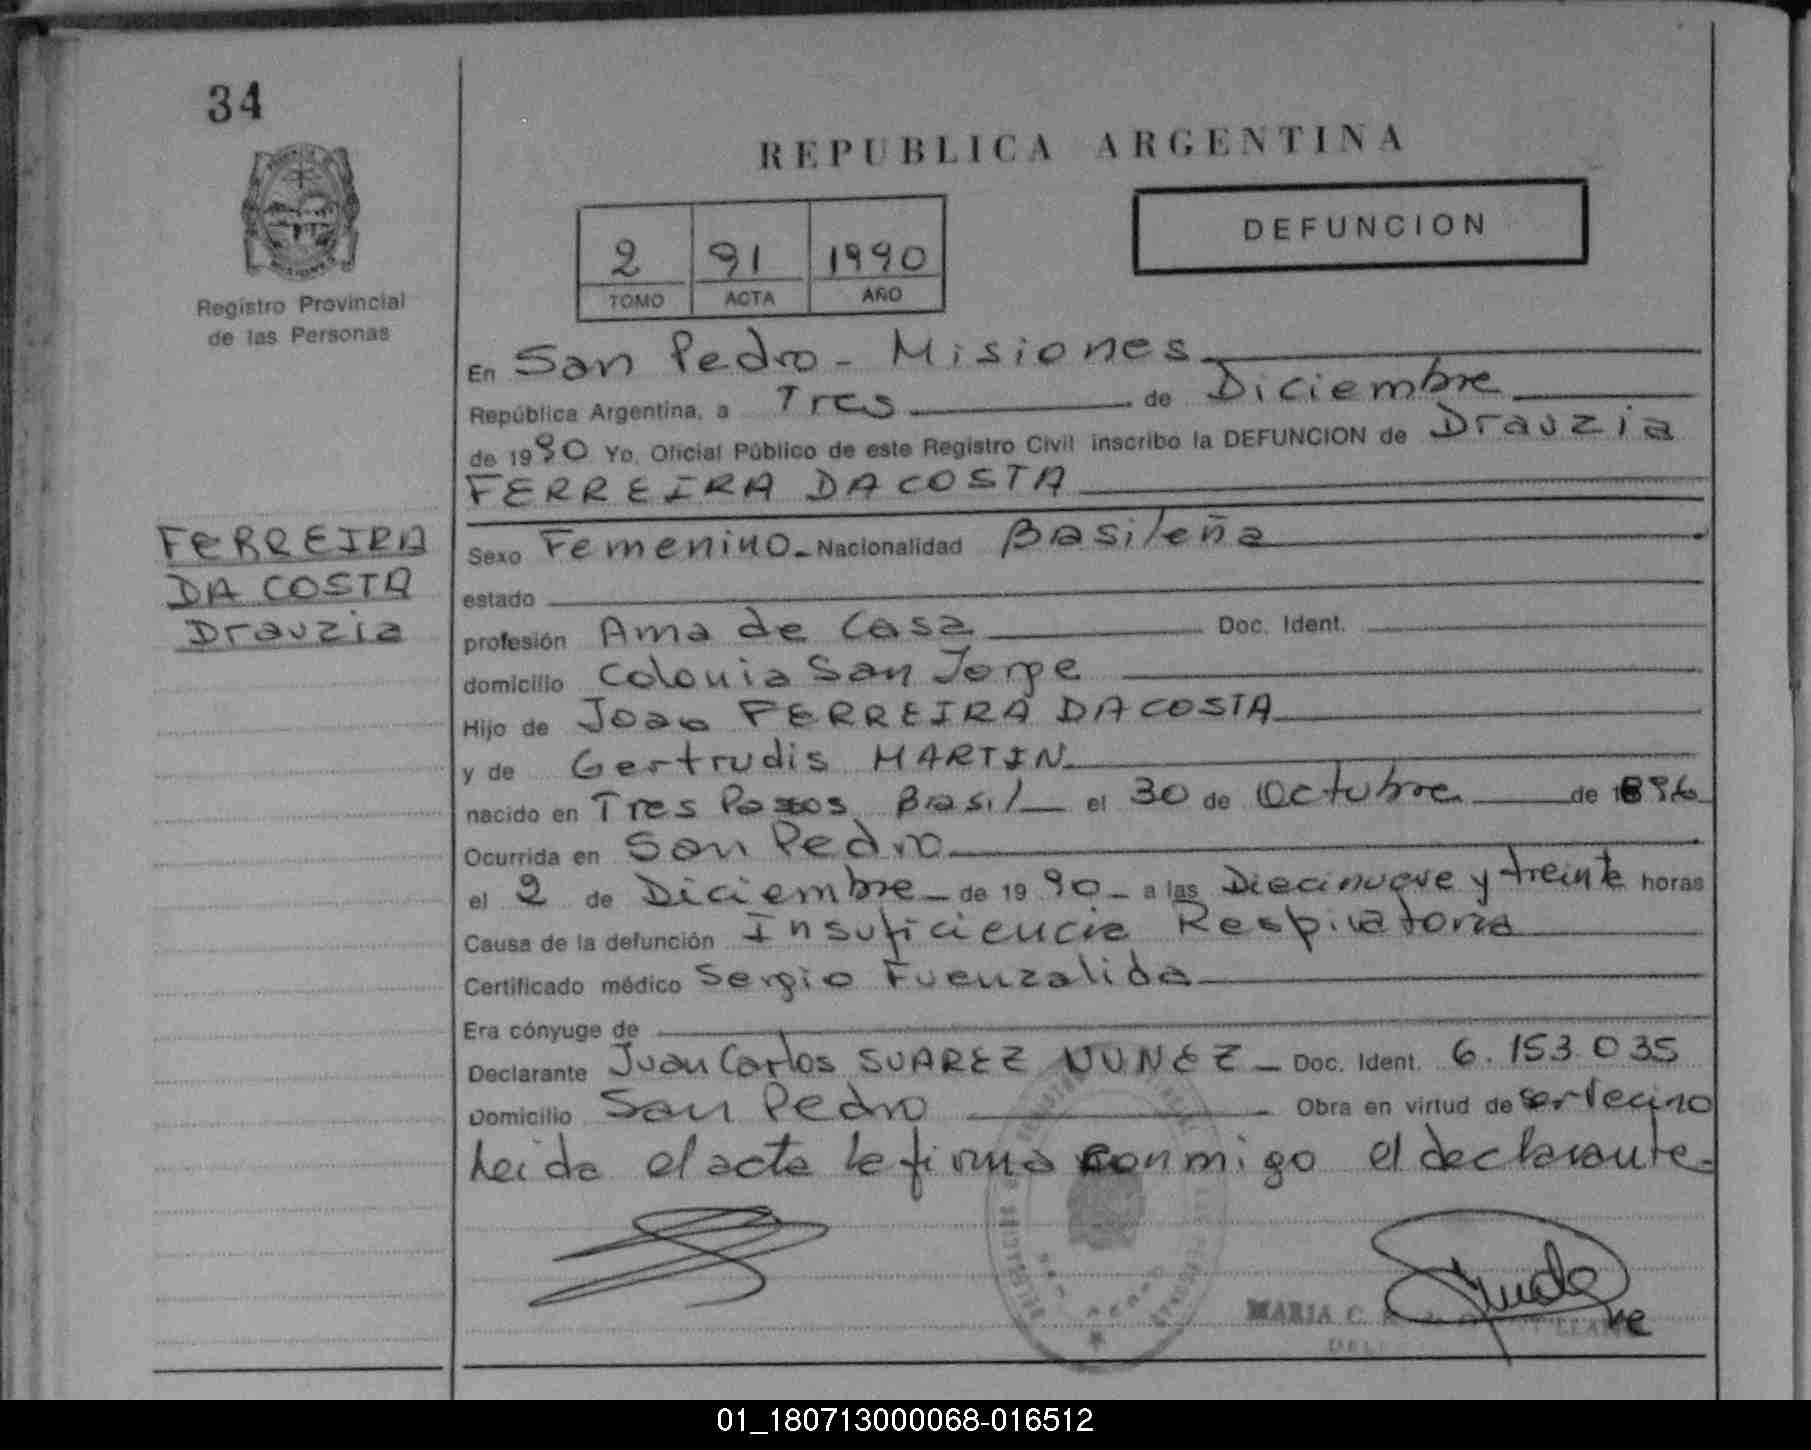 34
REPUBLICA ARGENTINA
DEFUNCION
2 91 1990
TOMO ACTA AÑO
Registro Provincial
de las Personas
En San Pedro - Misiones
República Argentina, a Tres de Diciembre
de 1990 Yo, Oficial Público de este Registro Civil inscribo la DEFUNCION de Drauzia
FERREIRA DA COSTA
FERREIRA
DA COSTA
Drauzia
Sexo Femenino - Nacionalidad Basileña
estado
profesión Ama de Casa Doc. Ident.
domicilio Colonia San Jorge
Hijo de Joao FERREIRA DA COSTA
y de Gertrudis MARTIN
nacido en Tres Passos Brasil el 30 de Octubre de
Ocurrida en San Pedro
el 2 de Diciembre - de 1990 - a las Diecinueve y treinta horas
Causa de la defunción Insuficiencia Respiratoria
Certificado médico Sergio Fuenzalida
Era cónyuge de
Declarante Juan Carlos SUAREZ NUNEZ - Doc. Ident. 6.153.035
Domicilio San Pedro Obra en virtud de ser vecino
Leida el acta la firma conmigo el declarante -
MARIA C.
01_180713000068-016512